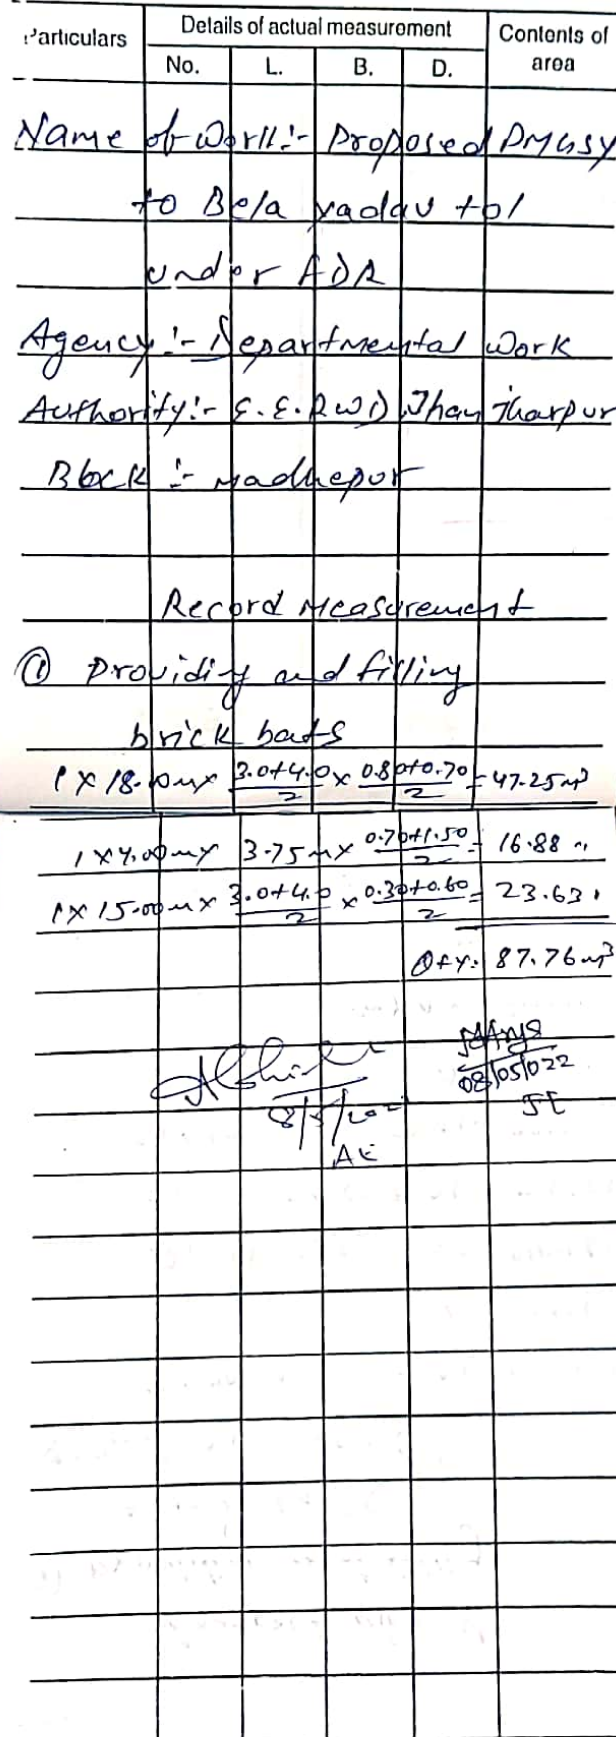 Particulars Details of actual measurement Contents of area
No. L. B. D.
Name of Work:- Proposed PMGSY
to Bela yadav tol
under FDR
Agency:- Departmental Work
Authority:- E.E.RWD Jhanjharpur
Block :- Madhepur
Record Measurement
① Providing and filling
brick bats
1 x 18.00m x 3.0+4.0/2 x 0.80+0.70/2 = 47.25m³
1 x 4.00m x 3.75m x 0.70+1.50/2 = 16.88 "
1 x 15.00m x 3.0+4.0/2 x 0.30+0.60/2 = 23.63 "
Qty: 87.76m³
08/05/022
JE
AE